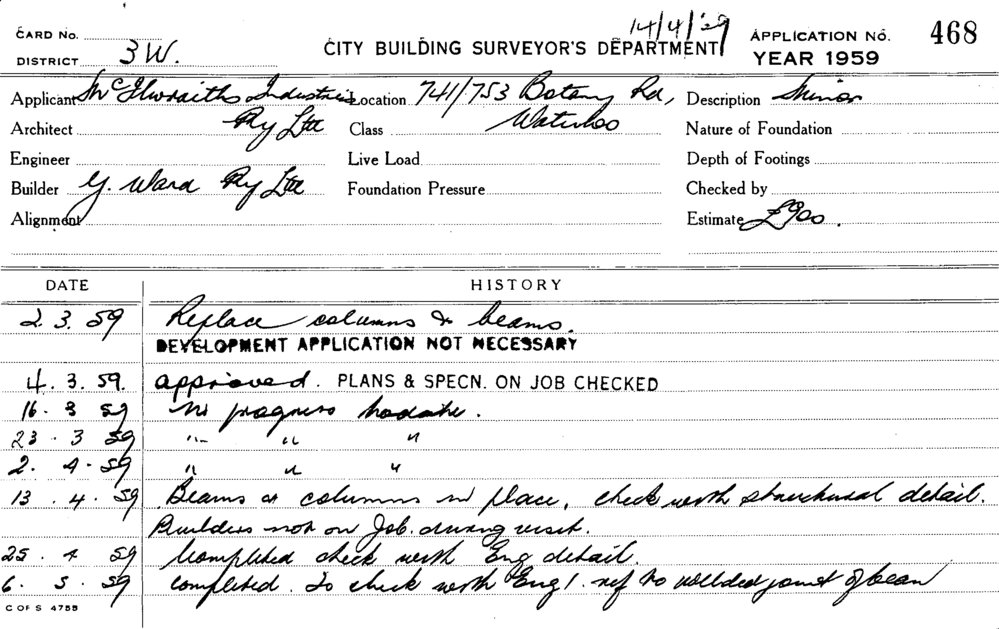 CARD No.
14/4/59
CITY BUILDING SURVEYOR'S DEPARTMENT
APPLICATION No. 468
DISTRICT 3W.
YEAR 1959
Applicant McIlwraiths Industries Location 741/753 Botany Rd, Description Minor
Architect Pty Ltd Class Waterloo Nature of Foundation
Engineer Live Load Depth of Footings
Builder G. Ward Pty Ltd Foundation Pressure Checked by
Alignment Estimate £900.
DATE HISTORY
2. 3. 59 Replace columns & beams.
DEVELOPMENT APPLICATION NOT NECESSARY
4. 3. 59. approved. PLANS & SPECN. ON JOB CHECKED
16. 3 59 No progress to date.
23. 3 59 " " "
2. 4. 59 " " "
13. 4. 59 Beams & columns in place, check with structural detail.
Builders not on Job during visit.
25. 4 59 Completed check with Eng detail.
6. 5. 59 completed. To check with Eng. ref to wellded joint of beam
C OF S 4755